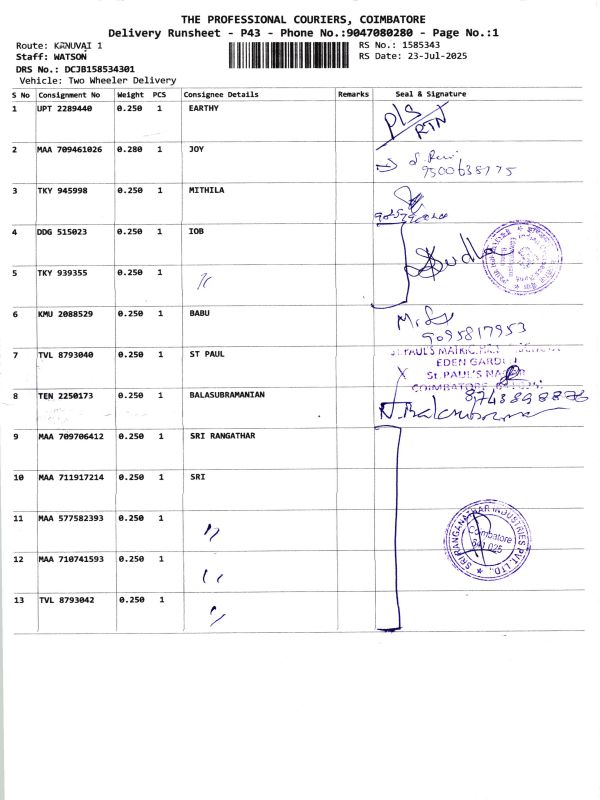 THE PROFESSIONAL COURIERS, COIMBATORE
Delivery Runsheet - P43 - Phone No.:9047080280 - Page No.:1
Route: KANUVAI 1
RS No.: 1585343
Staff: WATSON
RS Date: 23-Jul-2025
DRS No.: DCJB158534301
Vehicle: Two Wheeler Delivery
S No Consignment No Weight PCS Consignee Details Remarks Seal & Signature
1 UPT 2289440 0.250 1 EARTHY P/S RTN
2 MAA 709461026 0.280 1 JOY
9500638775
3 TKY 945998 0.250 1 MITHILA
4 DDG 515023 0.250 1 IOB
5 TKY 939355 0.250 1 〃
6 KMU 2088529 0.250 1 BABU
9095817953
7 TVL 8793040 0.250 1 ST PAUL
EDEN GARDEN
St. PAUL'S NAGAR
8 TEN 2250173 0.250 1 BALASUBRAMANIAN 8743898876
9 MAA 709706412 0.250 1 SRI RANGATHAR
10 MAA 711917214 0.250 1 SRI
11 MAA 577582393 0.250 1 〃
12 MAA 710741593 0.250 1 〃
13 TVL 8793042 0.250 1 〃
SRI RANGANATHAR INDUSTRIES PVT. LTD.
Coimbatore
641 025